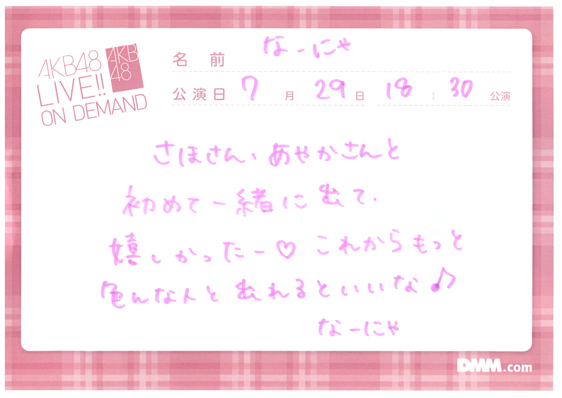 AKB48
LIVE!!
ON DEMAND
AKB
48
名 前 なーにゃ
公演日 7 月 29 日 18 : 30 公演
さほさん、あやかさんと
初めて一緒に出て、
嬉しかったー♡ これからもっと
色んな人と出れるといいな♪
なーにゃ
DMM.com